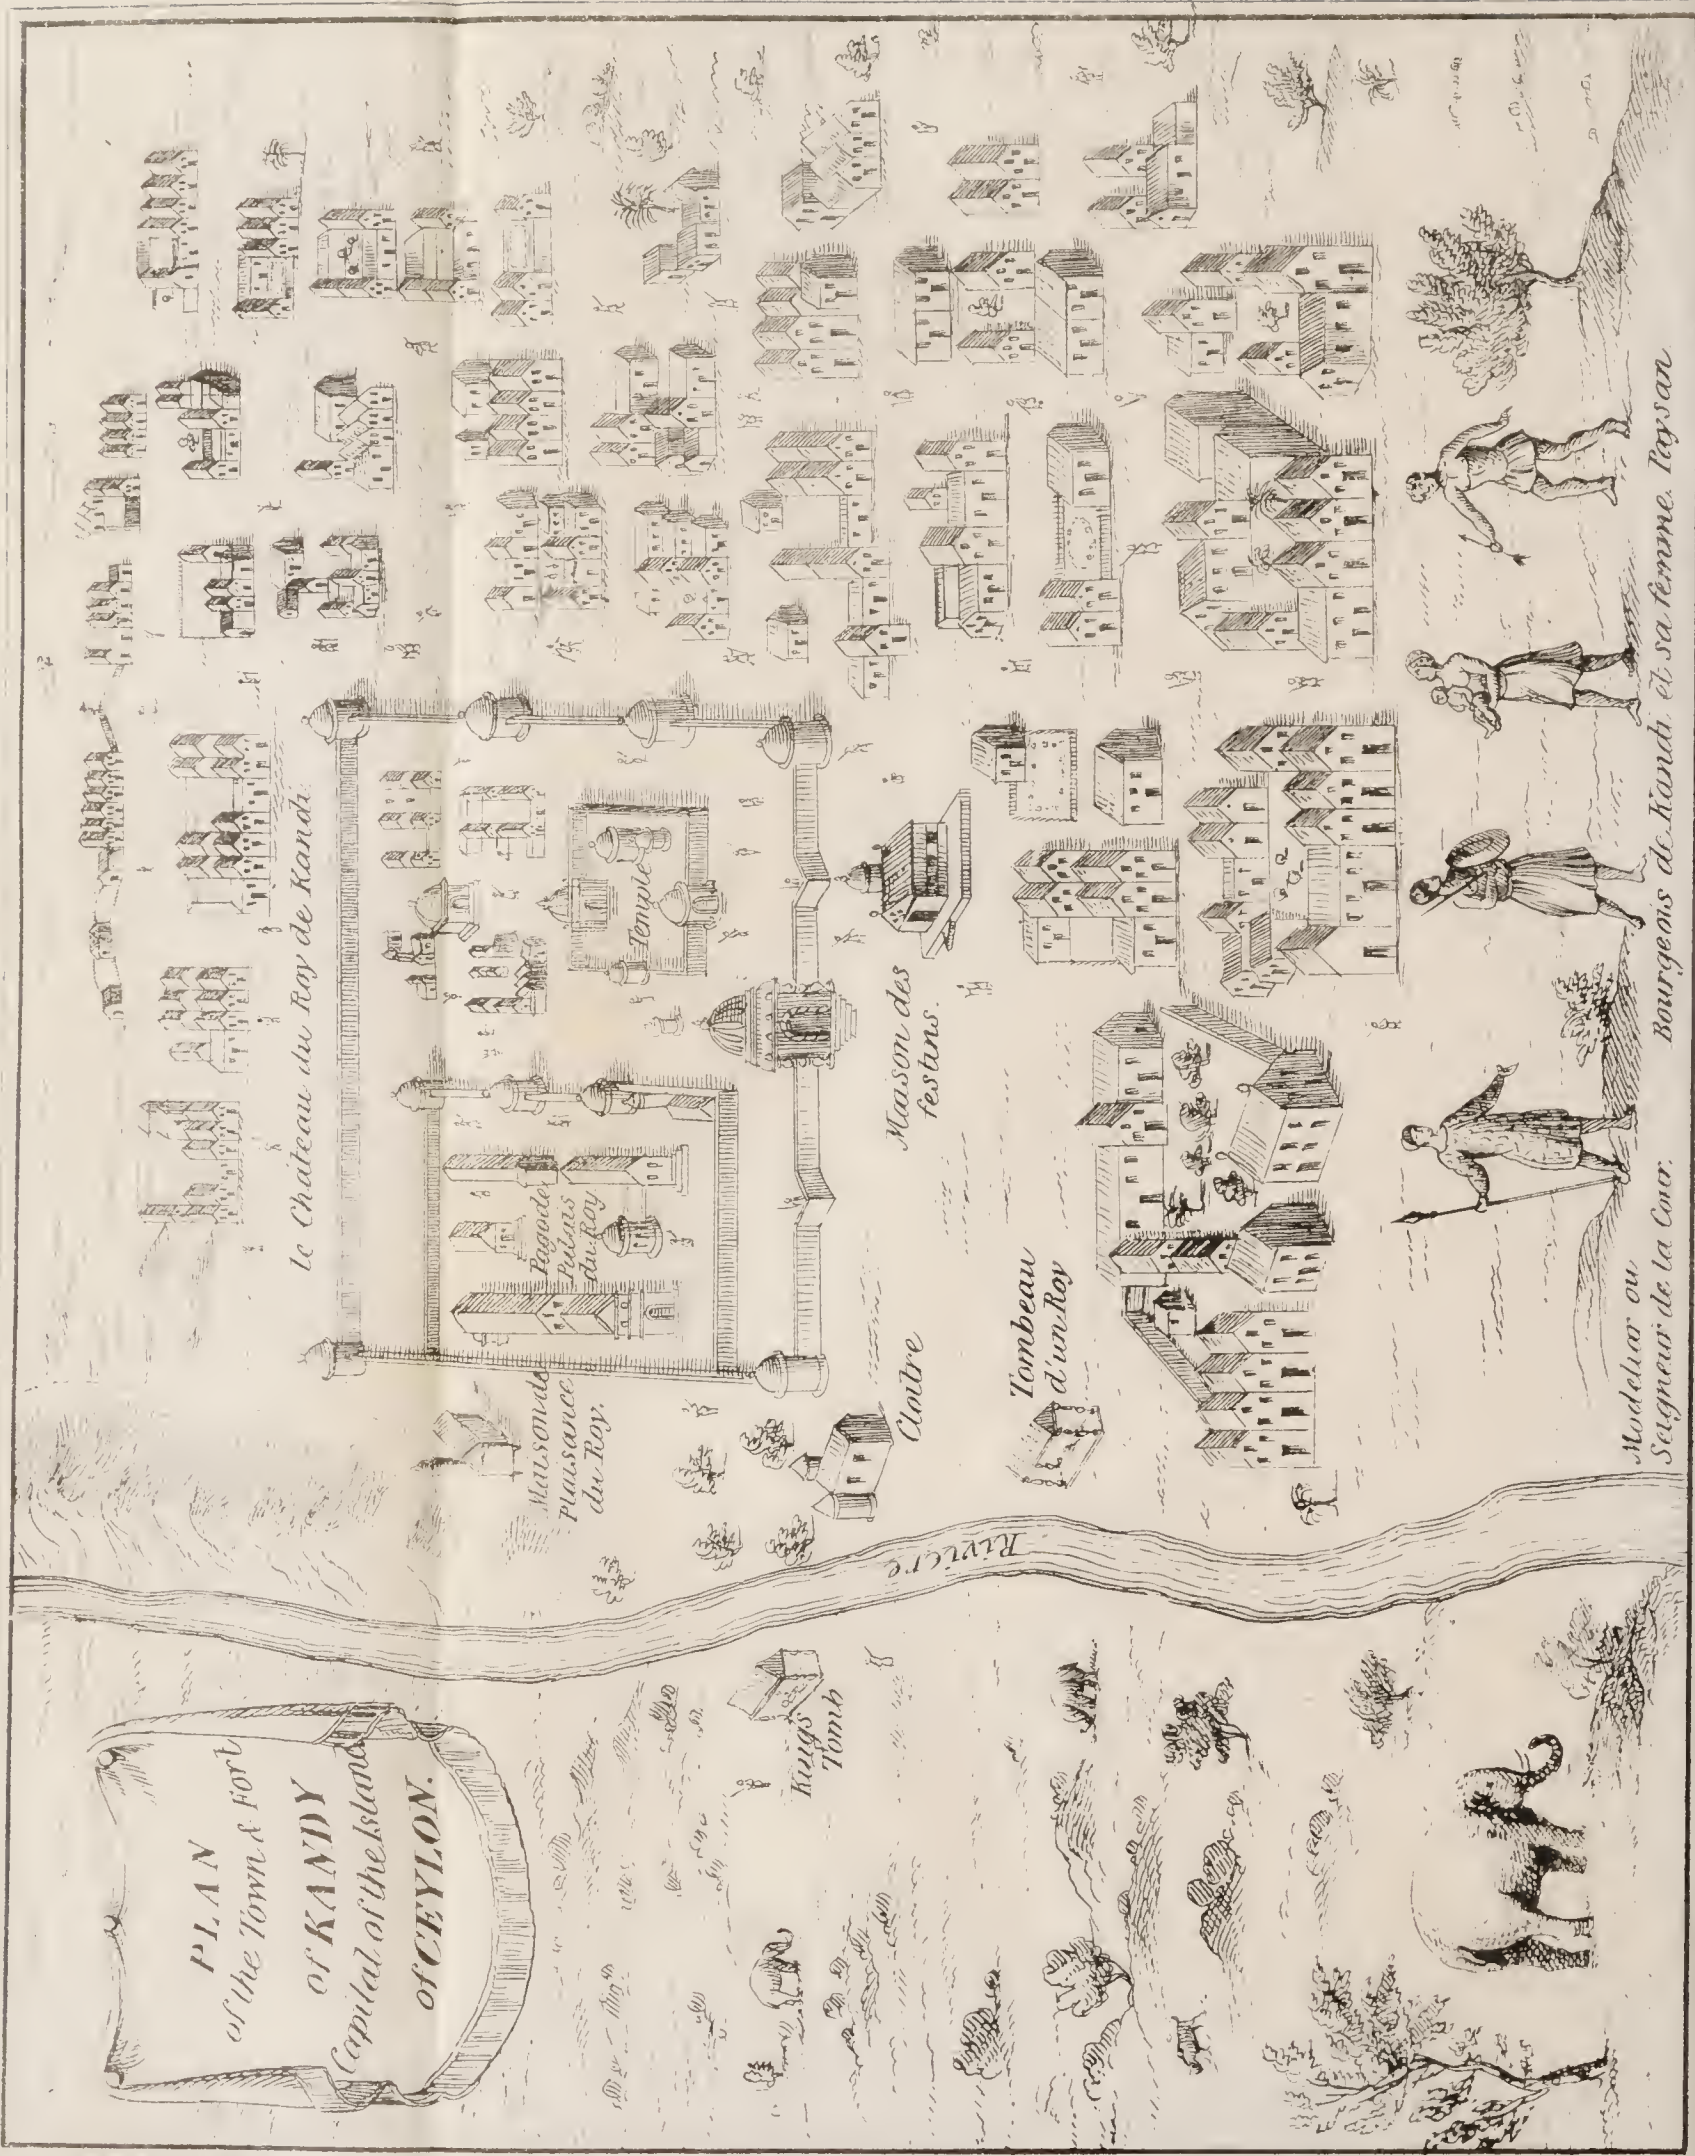 PLAN
of the Town & Fort
of KANDY
Capital of the Island
of CEYLON.
Le Chateau du Roy de Kandi
Maison de
Plaisance
du Roy.
Pagode
Palais
du Roy
Temple
Kings
Tomb
Riviere
Cloitre
Maison des
festins.
Tombeau
d'un Roy
Modeliar ou
Seigneur de la Cour.
Bourgeois de Kandi, et sa femme. Paysan